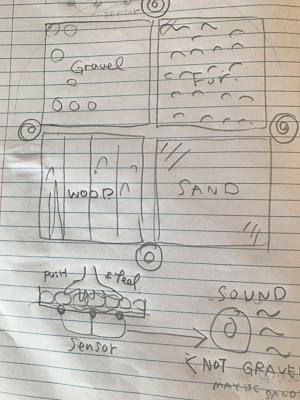 sensor
Gravel
Fur.
WOOD
SAND
push & feel
sensor
SOUND
NOT GRAVEL
MAYBE SAND